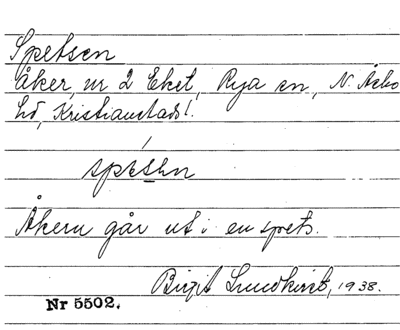 Spetsen
Åker, nr 2 Eket, Rya sn, N. Åsbo
hd, Kristianstads l.
spetsen
Åkern går ut i en spets.
Birgit Lundkvist, 1938.
Nr 5502.